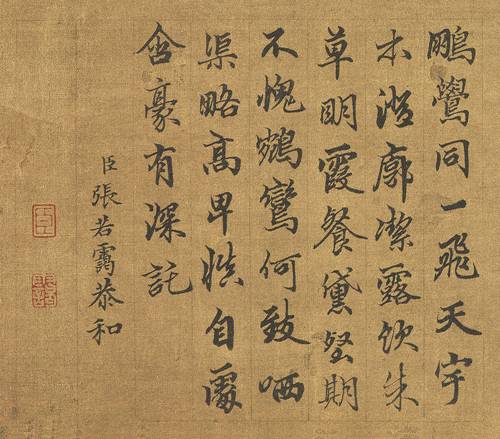 鵬鷽同一飛天宇
本廓潔露飲朱
草明霞餐黛壑期
不愧鵷鸞何致哂
渠略高卑慎自處
含豪有深託
臣張若靄恭和